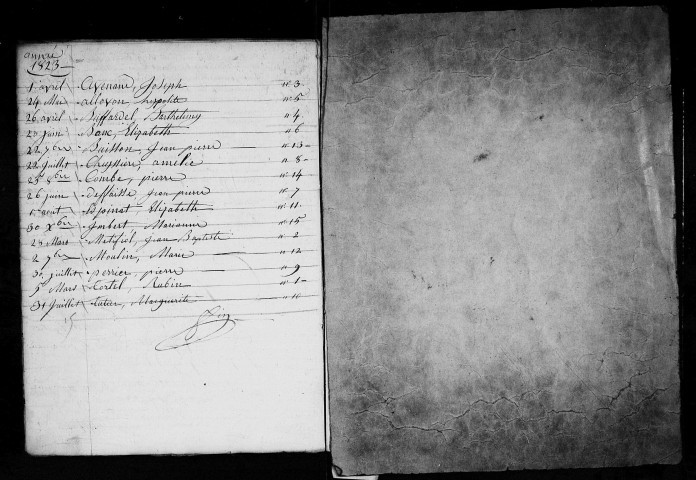 année
1823
1 avril Avenant, Joseph n° 3
24 Mai alloyon, hipolite n° 5
26 avril Biffardel, Barthelemy n° 4
20 juin Bouc, Elizabeth n° 6
22 9bre Buisson, Jean pierre n° 13
22 Juillet Cheyssiere, amelie n° 8
25 9bre Combe, pierre n° 14
26 juin deffaisse, jean pierre n° 7
1er aout Epoinat, Elizabeth n° 11
30 Xbre Imbert Marianne n° 15
23 Mars Metifiol, jean Baptiste n° 2
2 7bre Moulin, Marie n° 12
30 juillet perrier, pierre n° 9
5 Mars tortel, Rubin n° 1
31 Juillet tatier, Marguerite n° 10
15
fin